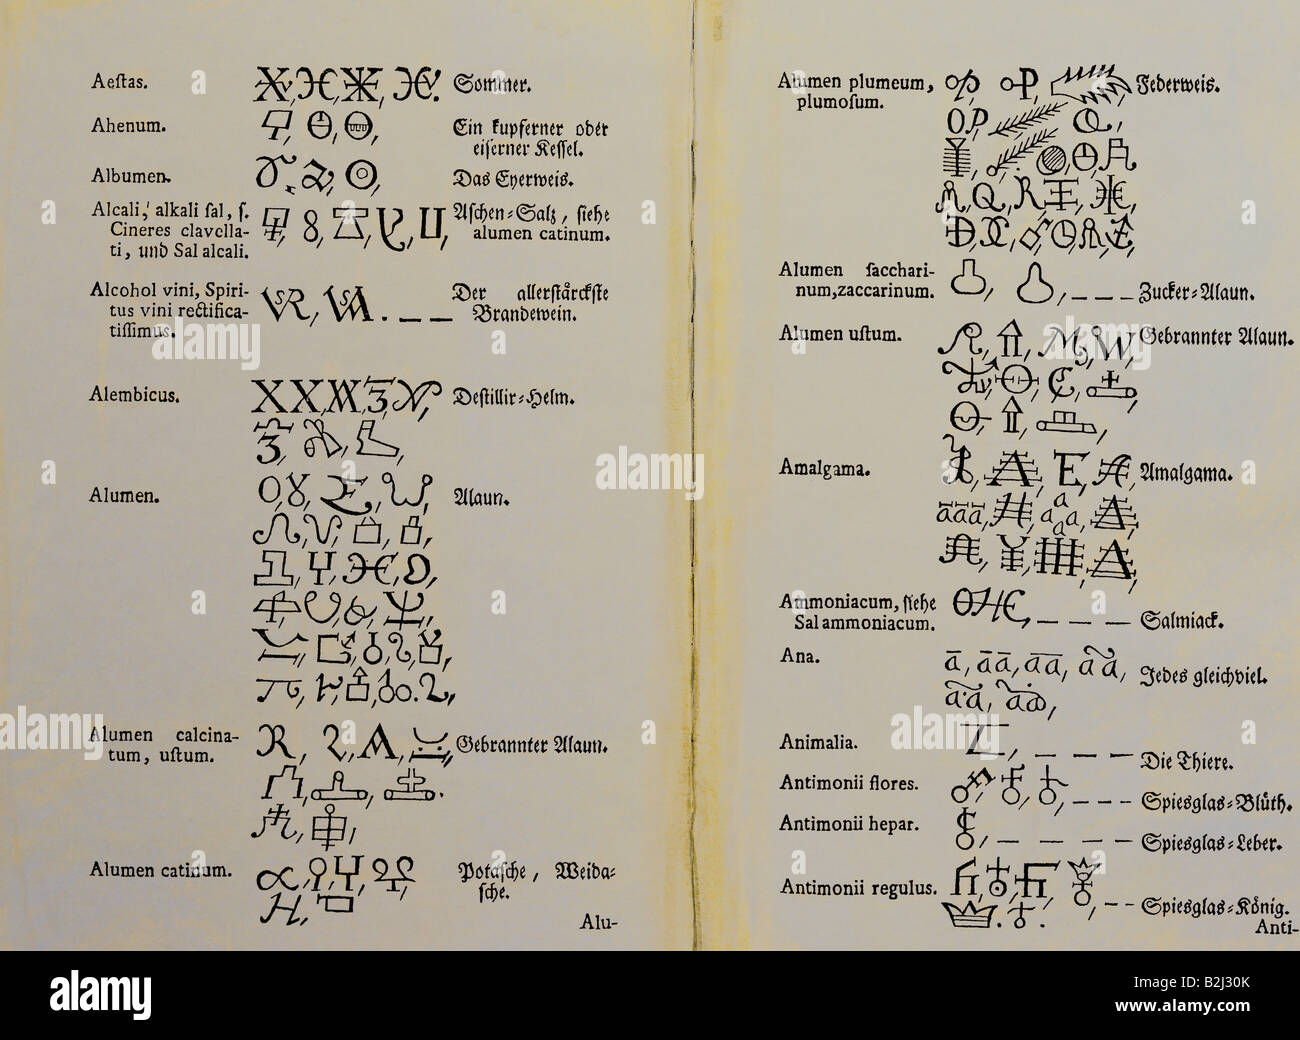 Aeſtas. Sommer.
Ahenum. Ein kupferner oder
eiſerner Keſſel.
Albumen. Das Eyerweis.
Alcali, alkali ſal, ſ. Aſchen-Salz, ſiehe
Cineres clavella- alumen catinum.
ti, und Sal alcali.
Alcohol vini, Spiri- Der allerſtärckſte
tus vini rectifica- Brandewein.
tiſſimus.
Alembicus. Deſtillir-Helm.
Alumen. Alaun.
Alumen calcina- Gebrannter Alaun.
tum, uſtum.
Alumen catinum. Potaſche, Weida-
ſche.
Alu-
Alumen plumeum, Federweis.
plumoſum.
Alumen ſacchari-
num, zaccarinum. Zucker-Alaun.
Alumen uſtum. Gebrannter Alaun.
Amalgama. Amalgama.
Ammoniacum, ſiehe
Sal ammoniacum. Salmiack.
Ana. Jedes gleichviel.
Animalia. Die Thiere.
Antimonii flores. Spiesglas-Blüth.
Antimonii hepar. Spiesglas-Leber.
Antimonii regulus. Spiesglas-König.
Anti-
alamy
Image ID: B2J30K
www.alamy.com